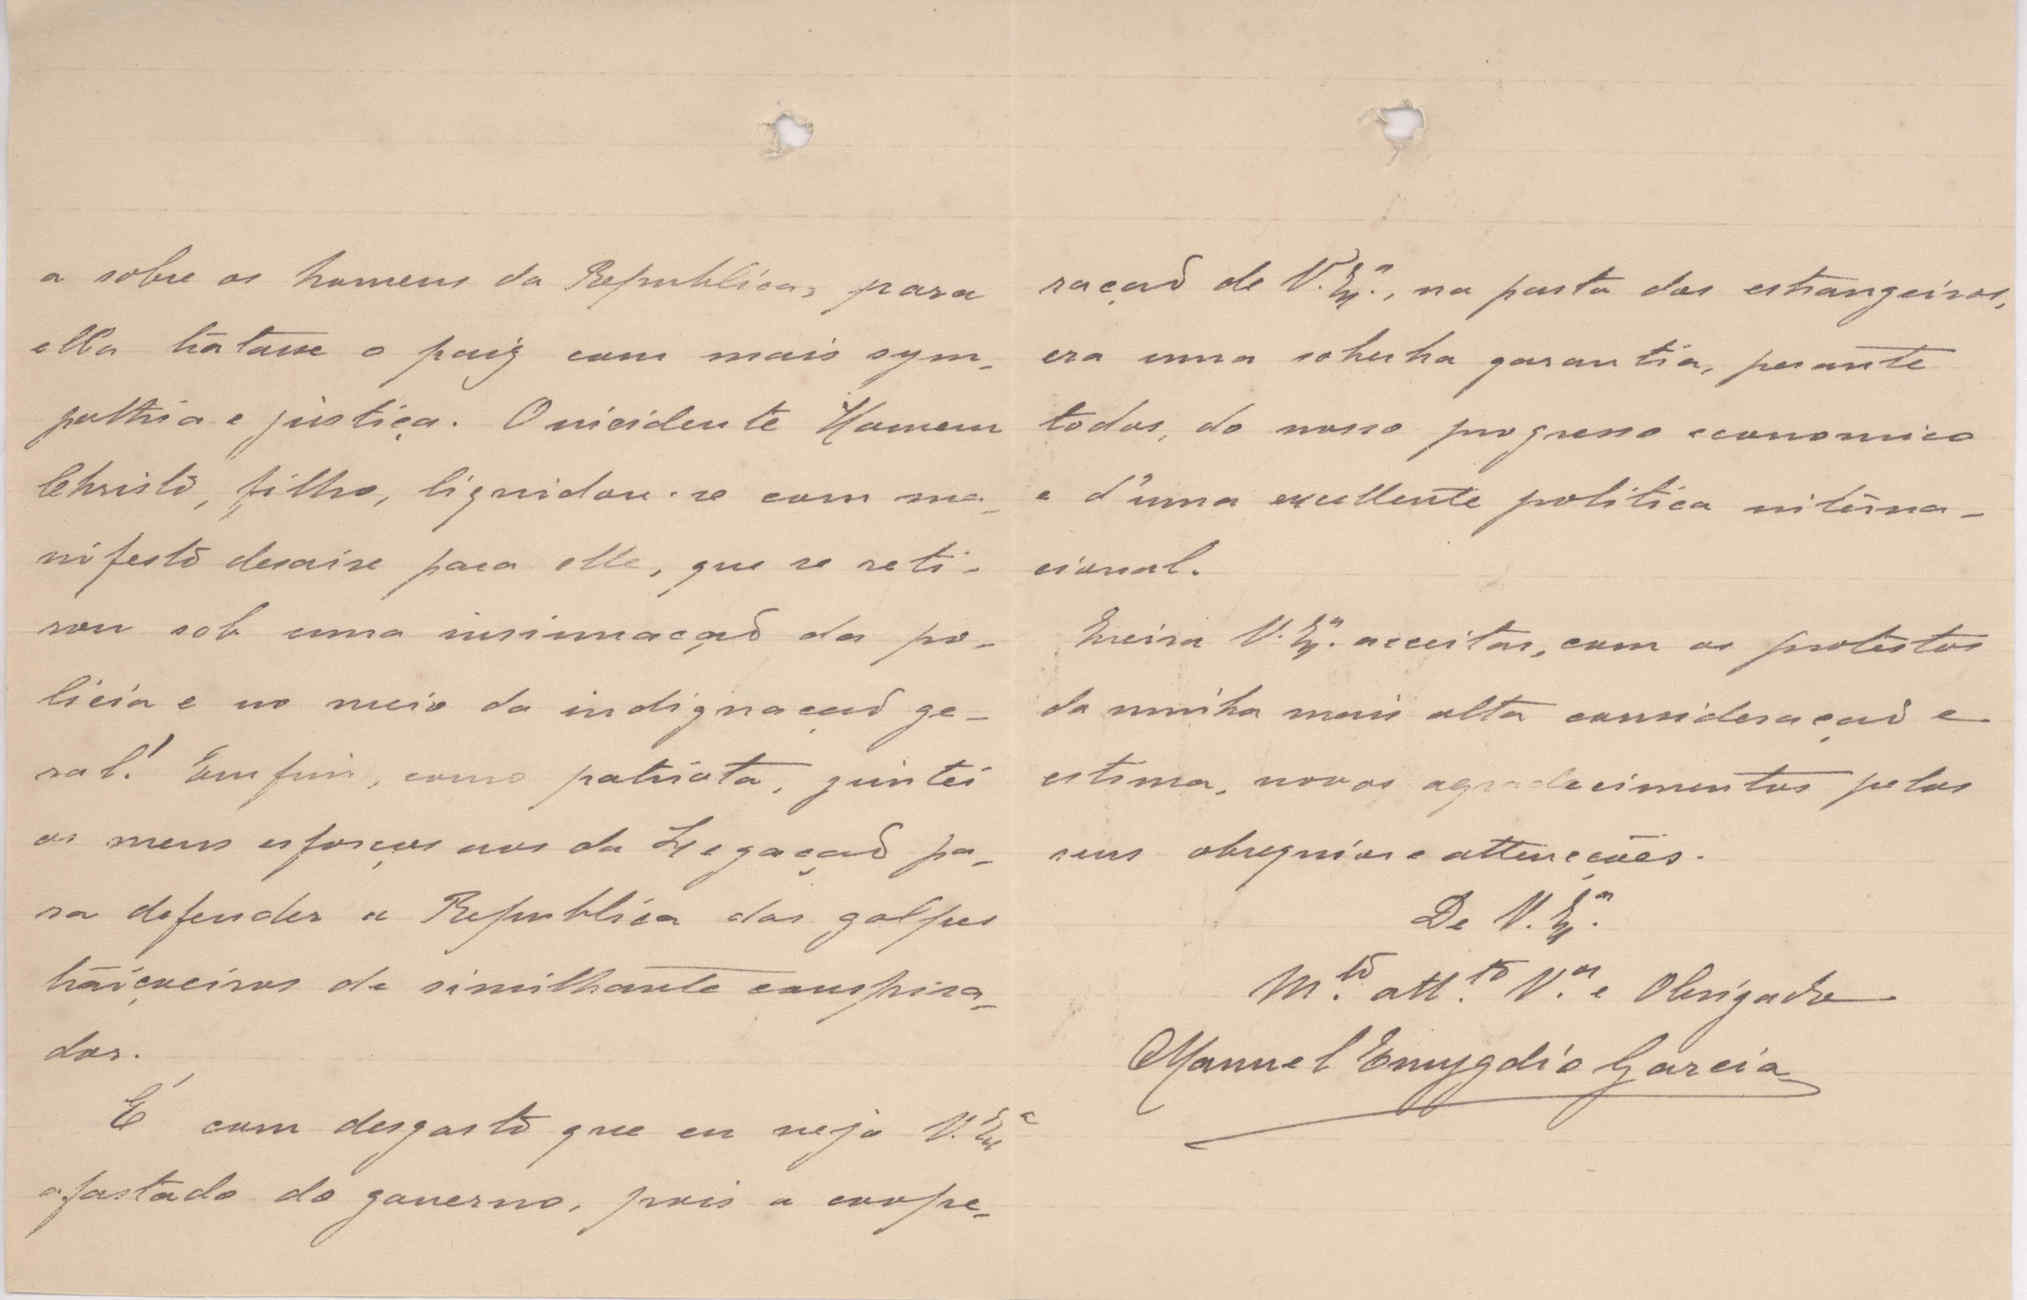 a sobre os homens da Republica, para
ella tratar o paiz com mais sym-
pathia e justiça. O incidente Homem
Christo, filho, liquidou-se com ma-
nifesto desaire para elle, que se reti-
rou sob uma insinuação da po-
licia e no meio da indignação ge-
ral! Emfim, como patriota, juntei
os meus esforços aos da Legação pa-
ra defender a Republica dos golpes
traiçoeiros de similhante conspira-
dor.
É com desgosto que eu vejo V. Exª
afastado do governo, pois a coope-
ração de V. Exª., na pasta dos estrangeiros,
era uma soberba garantia, perante
todos, do nosso progresso economico
e d'uma excellente politica interna-
cional.
Queira V. Exª. acceitar, com os protestos
da minha mais alta consideração e
estima, novos agradecimentos pelos
seus obsequios e attenções.
De V. Exª.
M.to att.to V.or e Obrigado
Manuel Emygdio Garcia